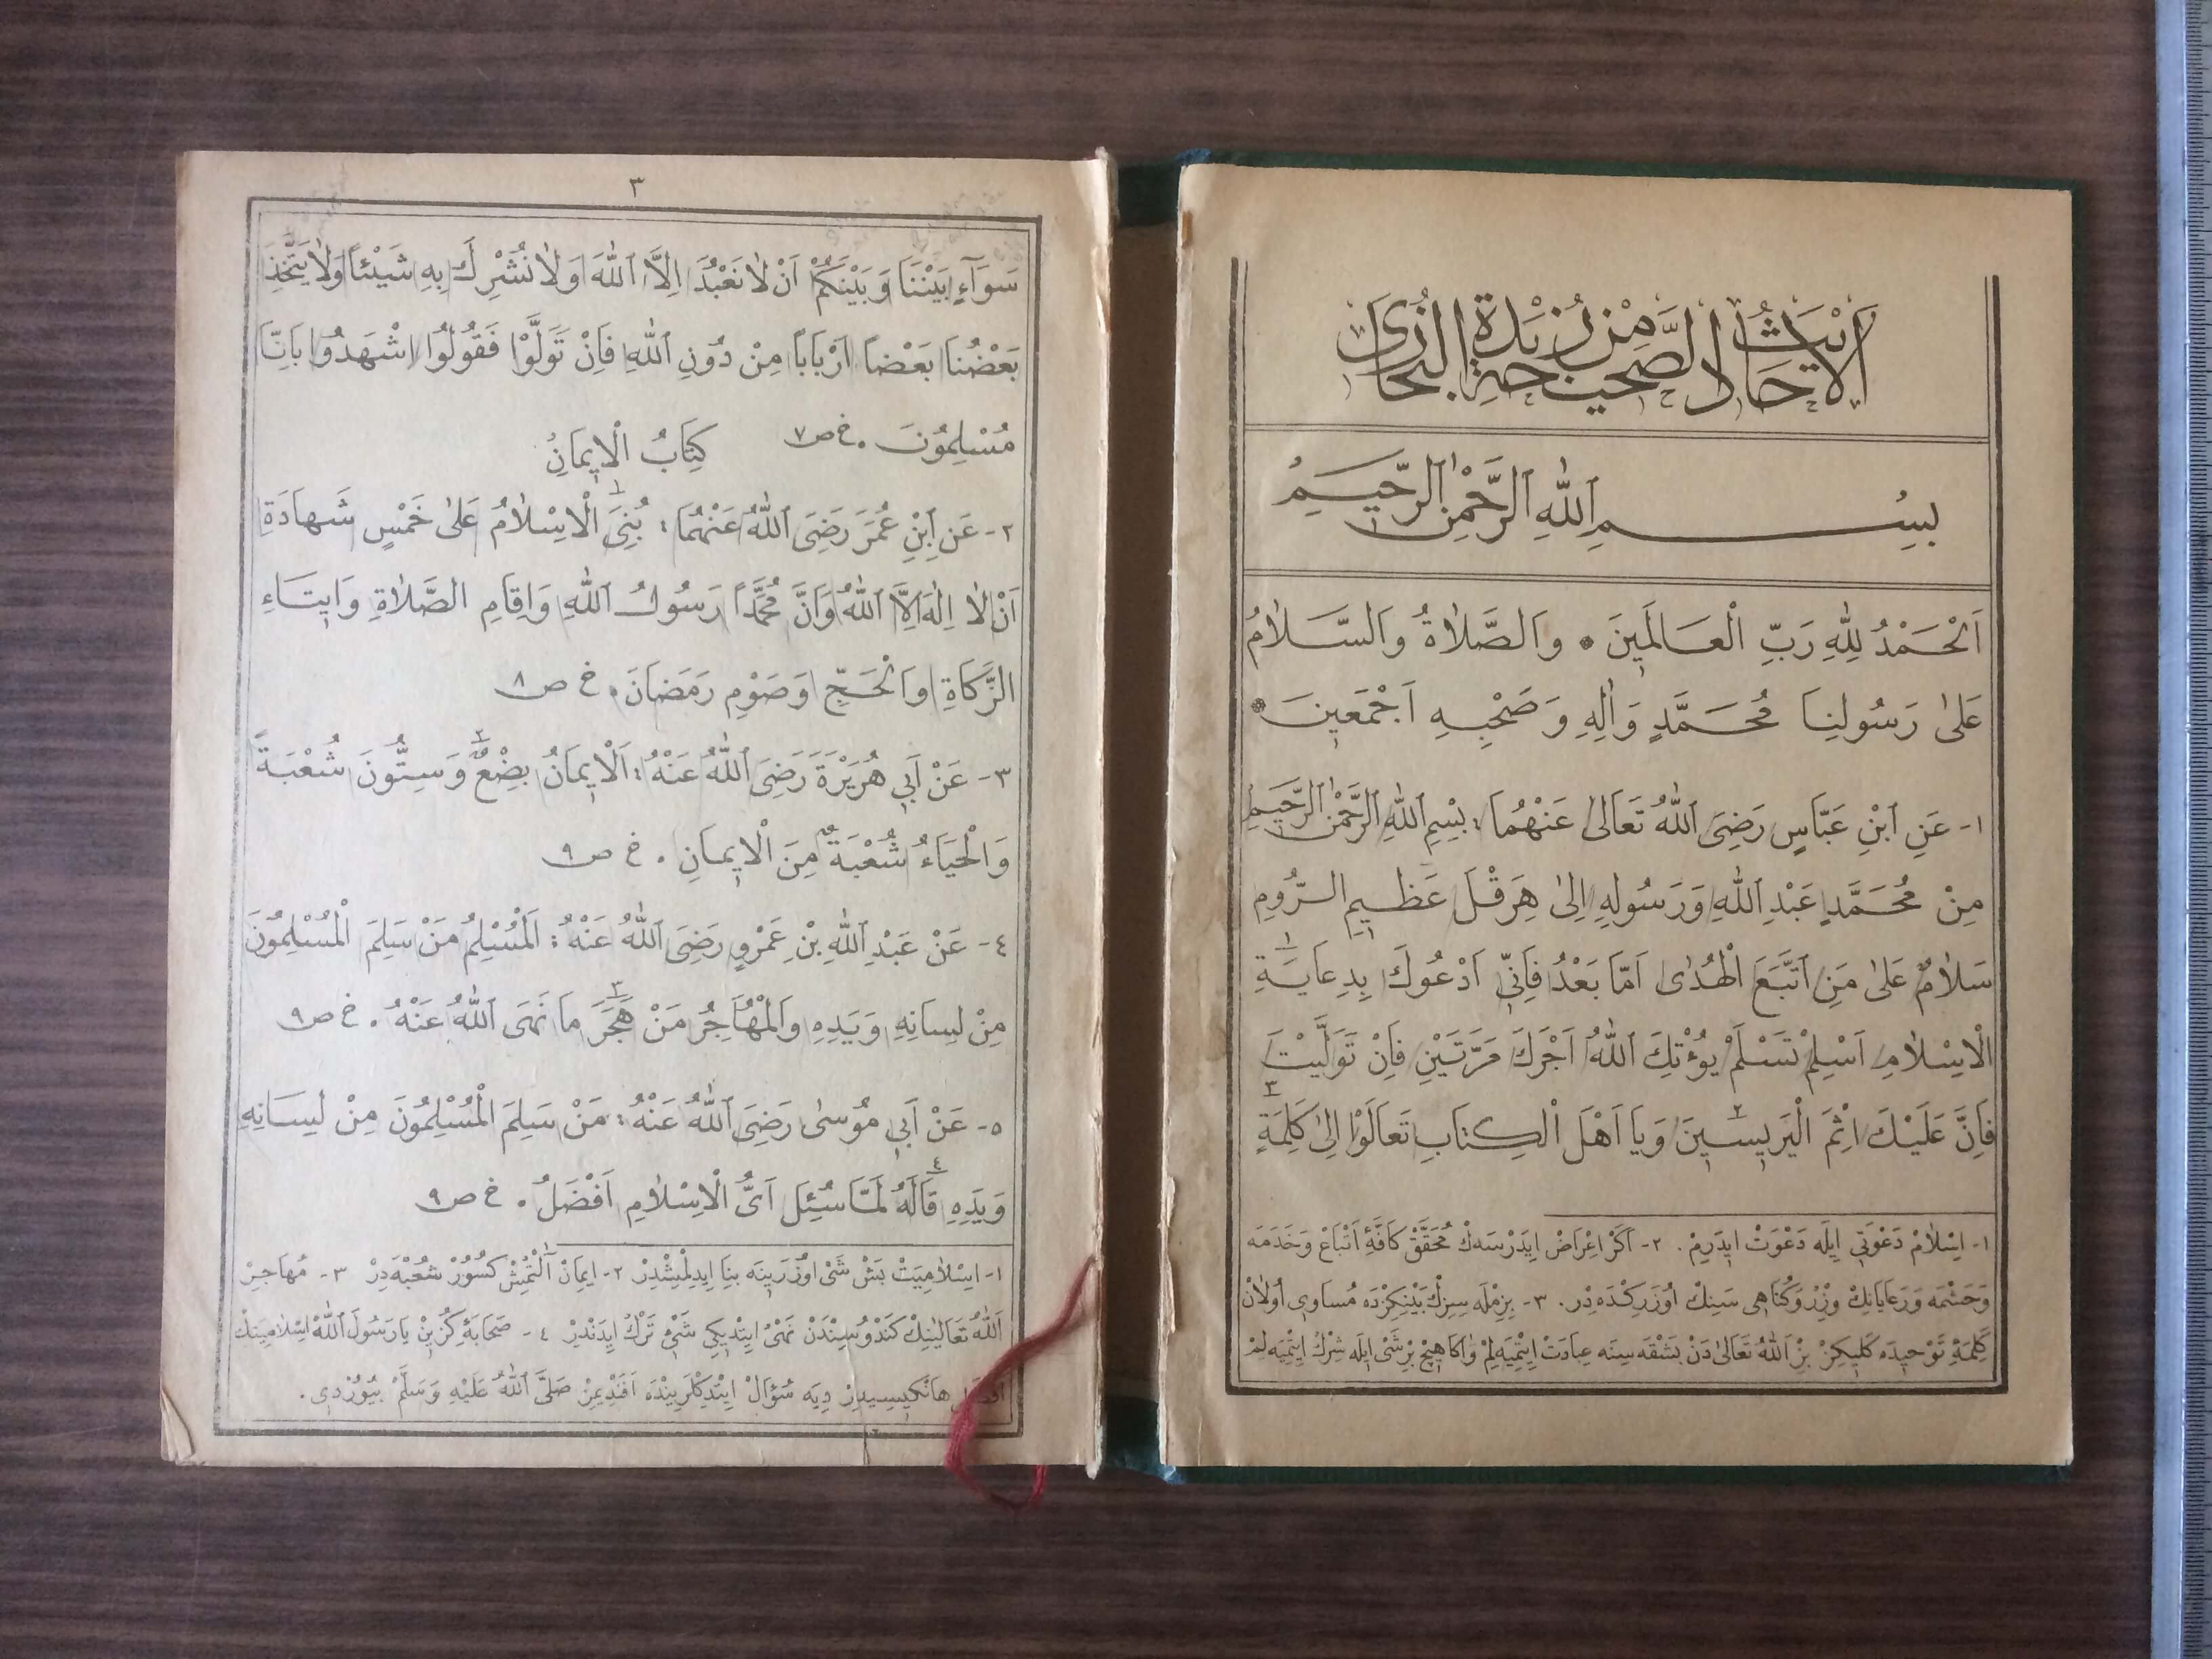 اَلْاَحَادِيثُ الصَّحِيحَةُ مِنْ زُبْدَةِ الْبُخَارِى
بِسْمِ اللّٰهِ الرَّحْمٰنِ الرَّحِيمِ
اَلْحَمْدُ لِلّٰهِ رَبِّ الْعَالَمِينَ * وَالصَّلَاةُ وَالسَّلَامُ
عَلٰى رَسُولِنَا مُحَمَّدٍ وَاٰلِهِ وَصَحْبِهِ اَجْمَعِينَ *
١- عَنِ ابْنِ عَبَّاسٍ رَضِىَ اللّٰهُ تَعَالٰى عَنْهُمَا: بِسْمِ اللّٰهِ الرَّحْمٰنِ الرَّحِيمِ
مِنْ مُحَمَّدٍ عَبْدِ اللّٰهِ وَرَسُولِهِ اِلٰى هِرَقْلَ عَظِيمِ الرُّومِ
سَلَامٌ عَلٰى مَنِ اتَّبَعَ الْهُدٰى اَمَّا بَعْدُ فَاِنِّى اَدْعُوكَ بِدِعَايَةِ ١
الْاِسْلَامِ اَسْلِمْ تَسْلَمْ يُؤْتِكَ اللّٰهُ اَجْرَكَ مَرَّتَيْنِ فَاِنْ تَوَلَّيْتَ
فَاِنَّ عَلَيْكَ اِثْمَ الْيَرِيسِينَ ٢ وَيَا اَهْلَ الْكِتَابِ تَعَالَوْا اِلٰى كَلِمَةٍ ٣
١- اِسْلَامْ دَعْوَتِى اِيلَه دَعْوَتْ اِيدَرِيمْ. ٢- اَكَرْ اِعْرَاضْ اِيدَرْسَهكْ مُحَقَّقْ كَافَّۀِ اَتْبَاعْ وَخَدَمَه
وَحَشَمَه وَرَعَايَانِكْ وِزْرْ وَكُنَاهِى سَنِكْ اُوزَرِكْدَه دِرْ. ٣- بِزِمْلَه سِزِكْ بَيْنِكِزْدَه مُسَاوِى اُولَانْ
كَلِمَۀِ تَوْحِيدَه كَلِيكِزْ بِزْ اَللّٰهُ تَعَالٰى دَنْ بَشْقَه سِنَه عِبَادَتْ اِيتْمِيَه لِمْ وَاكَا هِيچْ بِرْ شَىْ اِيلَه شِرْكْ اِيتْمِيَه لِمْ
٣
سَوَآءٍ بَيْنَنَا وَبَيْنَكُمْ اَنْ لَا نَعْبُدَ اِلَّا اللّٰهَ وَلَا نُشْرِكَ بِهِ شَيْئًا وَلَا يَتَّخِذَ
بَعْضُنَا بَعْضًا اَرْبَابًا مِنْ دُونِ اللّٰهِ فَاِنْ تَوَلَّوْا فَقُولُوا اشْهَدُوا بِاَنَّا
مُسْلِمُونَ. خ ص ٧ كِتَابُ الْاِيمَانِ
٢- عَنِ ابْنِ عُمَرَ رَضِىَ اللّٰهُ عَنْهُمَا: بُنِىَ ١ الْاِسْلَامُ عَلٰى خَمْسٍ شَهَادَةِ
اَنْ لَا اِلٰهَ اِلَّا اللّٰهُ وَاَنَّ مُحَمَّدًا رَسُولُ اللّٰهِ وَاِقَامِ الصَّلَاةِ وَاِيتَاءِ
الزَّكَاةِ وَالْحَجِّ وَصَوْمِ رَمَضَانَ. خ ص ٨
٣- عَنْ اَبِى هُرَيْرَةَ رَضِىَ اللّٰهُ عَنْهُ: اَلْاِيمَانُ بِضْعٌ ٢ وَسِتُّونَ شُعْبَةً
وَالْحَيَاءُ شُعْبَةٌ مِنَ الْاِيمَانِ. خ ص ٩
٤- عَنْ عَبْدِ اللّٰهِ بْنِ عَمْرٍو رَضِىَ اللّٰهُ عَنْهُ: اَلْمُسْلِمُ مَنْ سَلِمَ الْمُسْلِمُونَ
مِنْ لِسَانِهِ وَيَدِهِ وَالْمُهَاجِرُ مَنْ هَجَرَ ٣ مَا نَهَى اللّٰهُ عَنْهُ. خ ص ٩
٥- عَنْ اَبِى مُوسٰى رَضِىَ اللّٰهُ عَنْهُ: مَنْ سَلِمَ الْمُسْلِمُونَ مِنْ لِسَانِهِ
وَيَدِهِ قَالَهُ ٤ لَمَّا سُئِلَ اَىُّ الْاِسْلَامِ اَفْضَلُ. خ ص ٩
١- اِسْلَامِيَتْ بَشْ شَىْ اُوزَرِينَه بِنَا اِيدِلْمِشْدِرْ ٢- اِيمَانْ اَلْتْمِشْ كُسُورْ شُعْبَه دِرْ ٣- مُهَاجِرْ
اَللّٰهُ تَعَالٰينِكْ كَنْدُوسِنْدَنْ نَهْىْ اِيتْدِيكِى شَىْئِ تَرْكْ اِيدَنْدِرْ ٤- صَحَابَۀِ كُزِينْ يَا رَسُولَ اللّٰهْ اِسْلَامِيتِكْ
اَفْضَلِ هَانْكِيسِيدِرْ دِيَه سُؤَالْ اِيتْدِكْلَرِينْدَه اَفَنْدِيمِزْ صَلَّى اللّٰهُ عَلَيْهِ وَسَلَّمْ بُيُورْدِى.